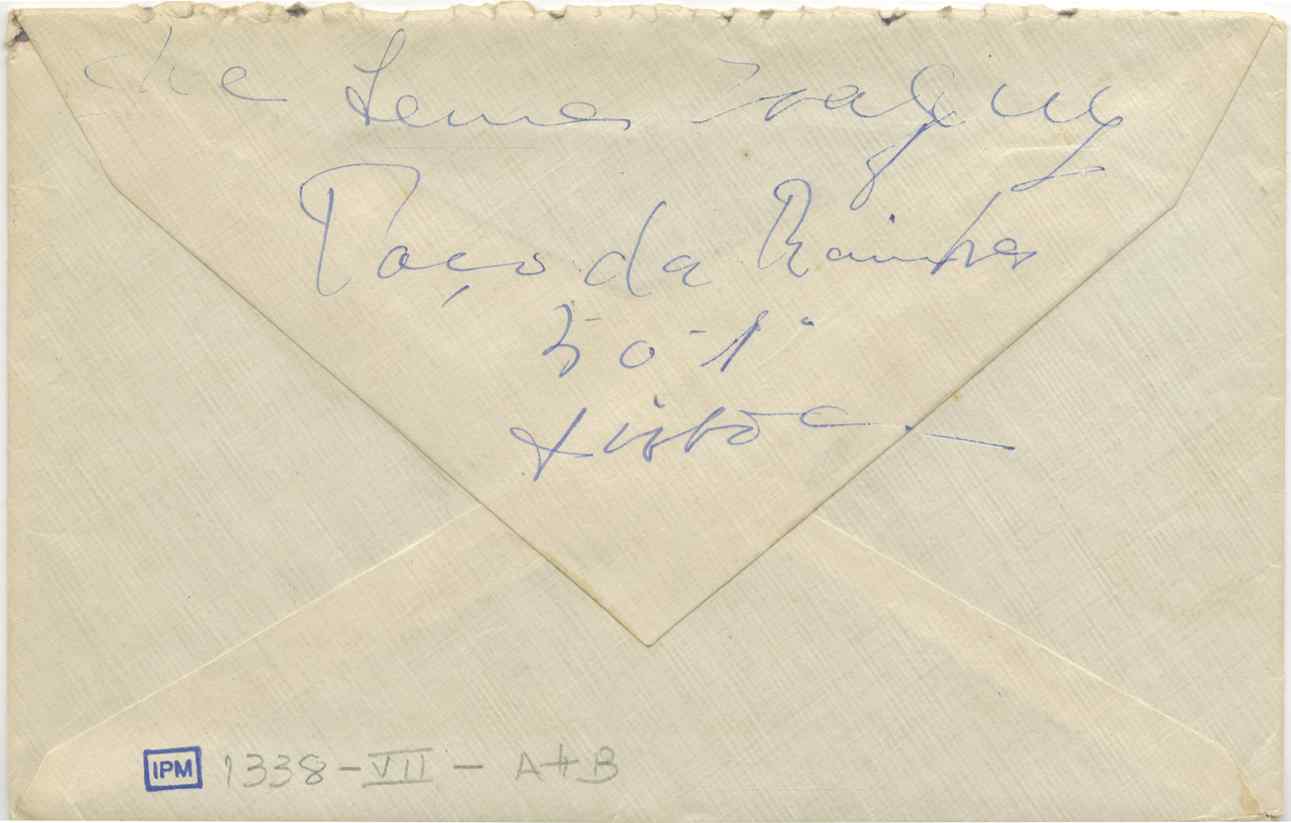 de Lemes
Paço da Rainha
50-1º
Lisboa
IPM 1338-VII-A+B